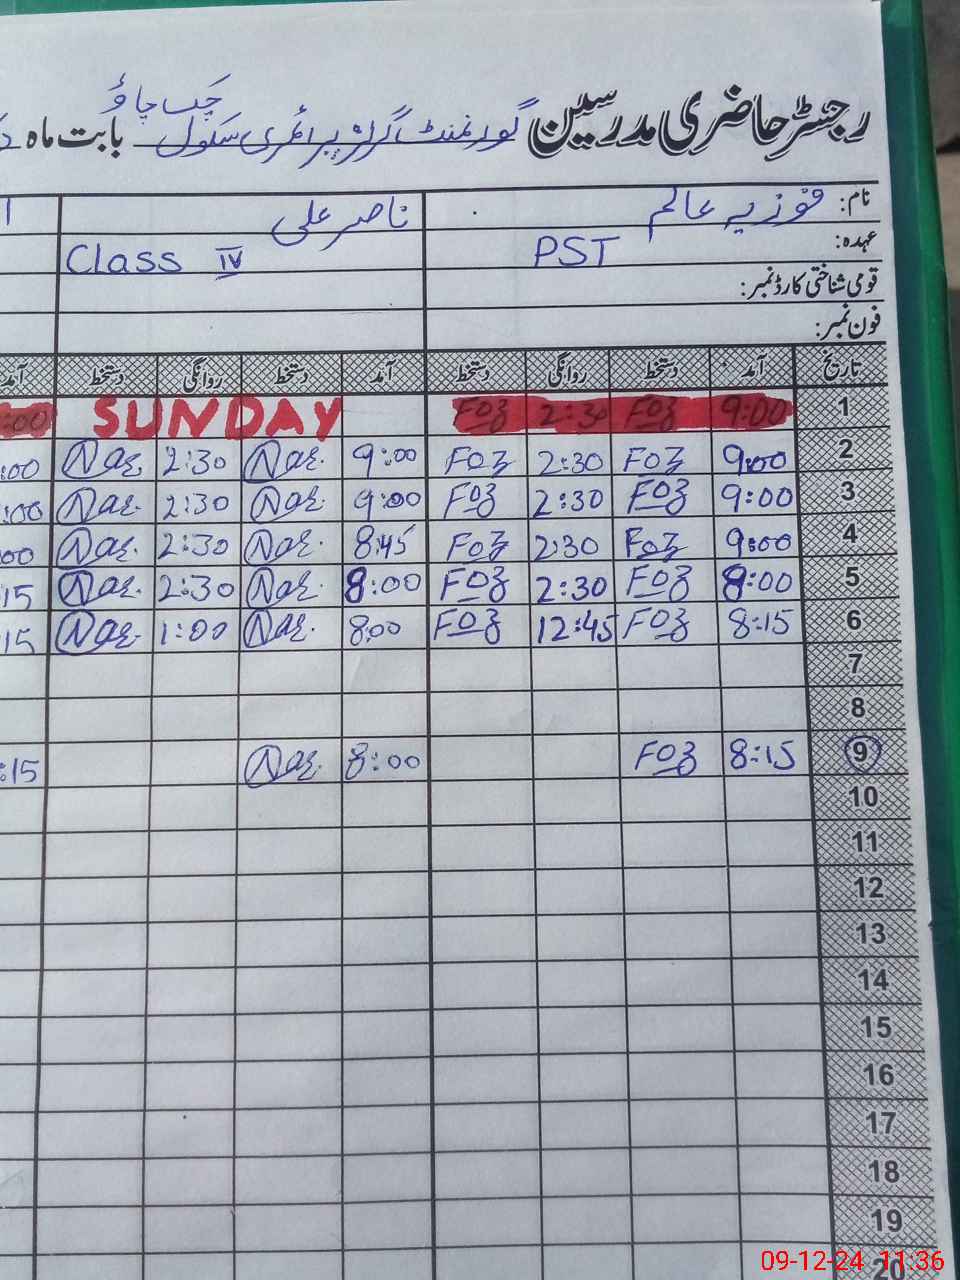 چب چاؤ
رجسٹر حاضری مدرسین گورنمنٹ گرلز پرائمری سکول بابت ماہ
نام: فوزیہ عالم ناصر علی
عہدہ: PST Class IV
قومی شناختی کارڈ نمبر:
فون نمبر:
تاریخ آمد دستخط روانگی دستخط آمد دستخط روانگی دستخط آمد
1 9:00 Foz 2:30 Foz SUNDAY :00
2 9:00 Foz 2:30 Foz 9:00 Naz. 2:30 Naz. :00
3 9:00 Foz 2:30 Foz 9:00 Naz. 2:30 Naz. :00
4 9:00 Foz 2:30 Foz 8:45 Naz. 2:30 Naz. 00
5 8:00 Foz 2:30 Foz 8:00 Naz. 2:30 Naz. 15
6 8:15 Foz 12:45 Foz 8:00 Naz. 1:00 Naz. 15
7
8
9 8:15 Foz 8:00 Naz. :15
10
11
12
13
14
15
16
17
18
19
20
09-12-24 11:36